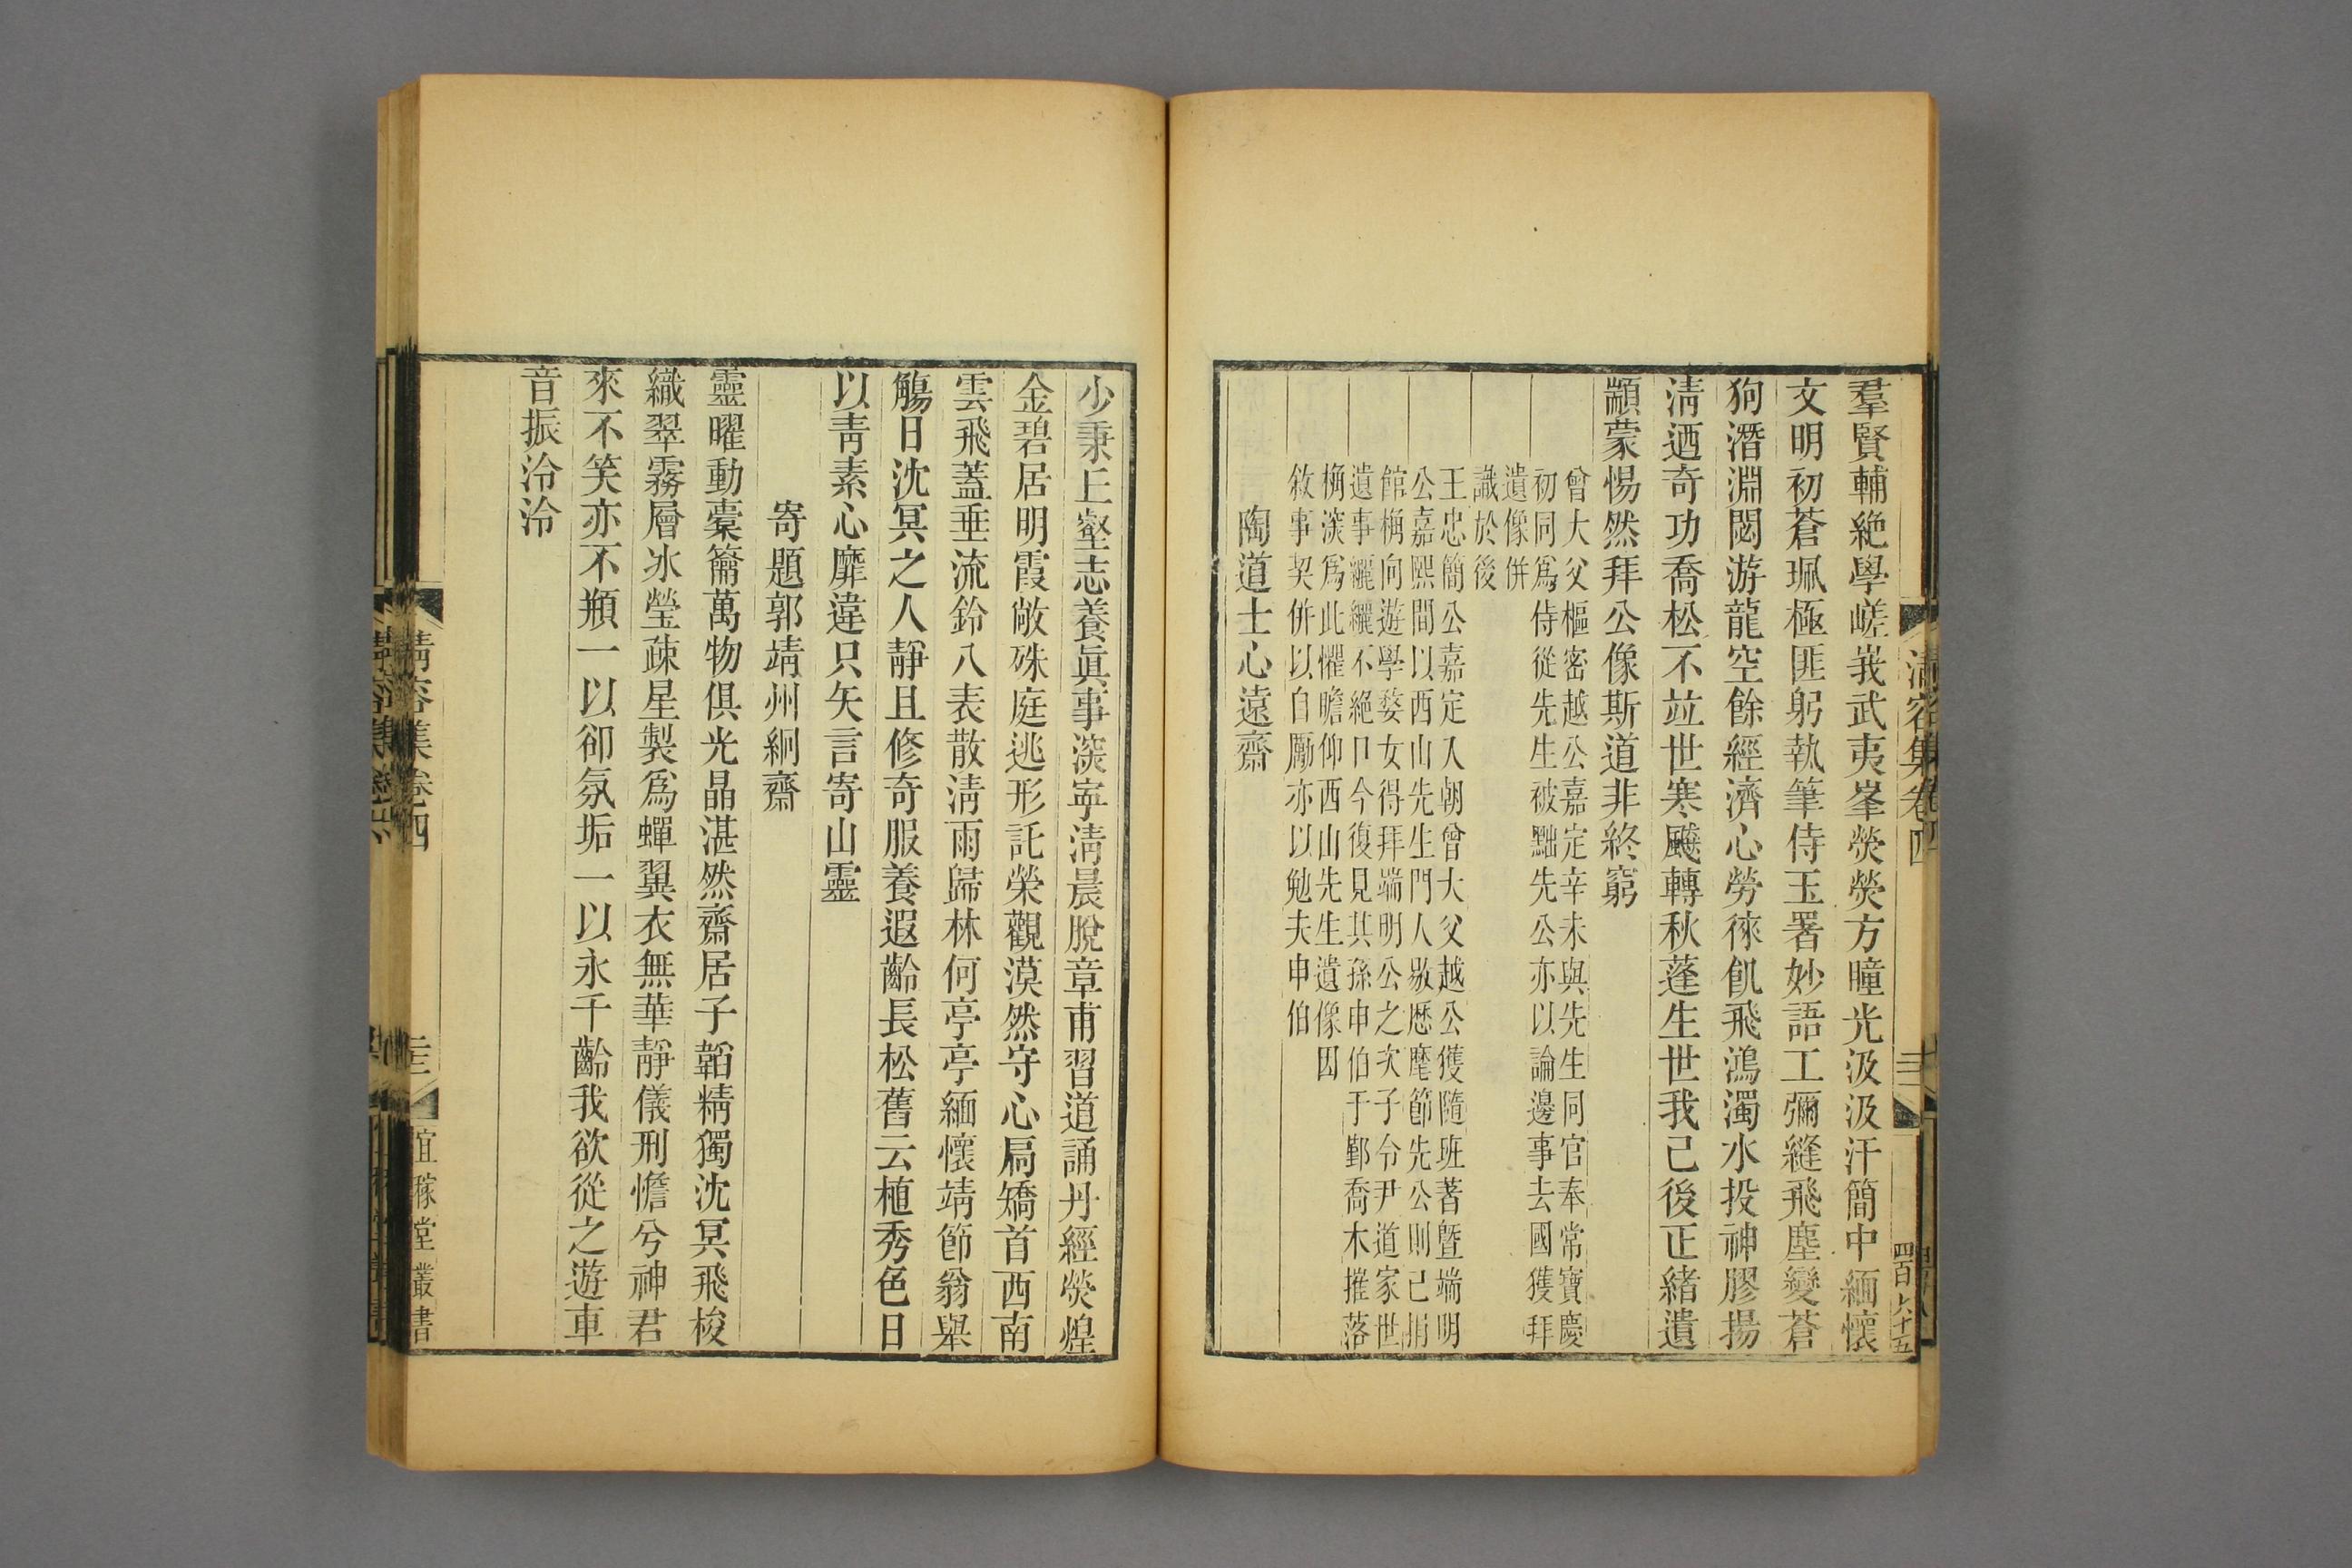 清容集卷四
羣賢輔絕學嵯峩武夷峯熒熒方瞳光汲汲汗簡中緬懷
文明初蒼珮極匪躬執筆侍玉署妙語工彌縫飛塵變蒼
狗潛淵閟游龍空餘經濟心勞徠飢飛鴻濁水投神膠揚
淸迺奇功喬松不竝世寒飈轉秋蓬生世我已後正緒遺
顓蒙惕然拜公像斯道非終窮
曾大父樞密越公嘉定辛未與先生同官奉常寶慶
初同爲侍從先生被黜先公亦以論邊事去國獲拜
遺像併
識於後
王忠簡公嘉定入朝曾大父越公獲隨班著曁端明
公嘉熙間以西山先生門人敭歷麾節先公則已捐
館桷向遊學婺女得拜端明公之次子令尹道家世
遺事纚纚不絕口今復見其孫申伯于鄞喬木摧落
桷深爲此懼瞻仰西山先生遺像因
敘事契併以自勵亦以勉夫申伯
陶道士心遠齋
四百六十五
少秉丘壑志養眞事深寧淸晨脫章甫習道誦丹經熒煌
金碧居明霞敞殊庭逃形託榮觀漠然守心扃矯首西南
雲飛蓋垂流鈴八表散淸雨歸林何亭亭緬懷靖節翁舉
觴日沈冥之人靜且修奇服養遐齡長松舊云植秀色日
以靑素心靡違只矢言寄山靈
寄題郭靖州絅齋
靈曜動橐籥萬物俱光晶湛然齋居子韜精獨沈冥飛梭
織翠霧層冰瑩疎星製爲蟬翼衣無華靜儀刑憺兮神君
來不笑亦不頩一以卻氛垢一以永千齡我欲從之遊車
音振泠泠
清容集卷四
宜稼堂叢書